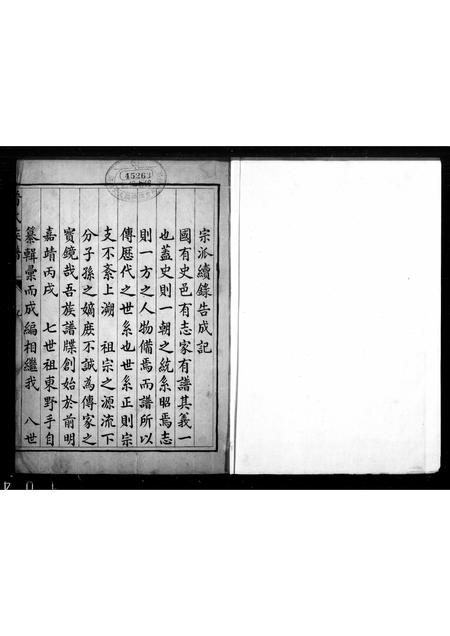 宗派續錄告成記
國有史邑有志家有譜其義一
也蓋史則一朝之統系昭焉志
則一方之人物備焉而譜所以
傳歷代之世系也世系正則宗
支不紊上溯 祖宗之源流下
分子孫之嫡庶不誠為傳家之
寶鏡哉吾族譜牒創始於前明
嘉靖丙戌 七世祖東野手自
纂輯彙而成編相繼我 八世
45263